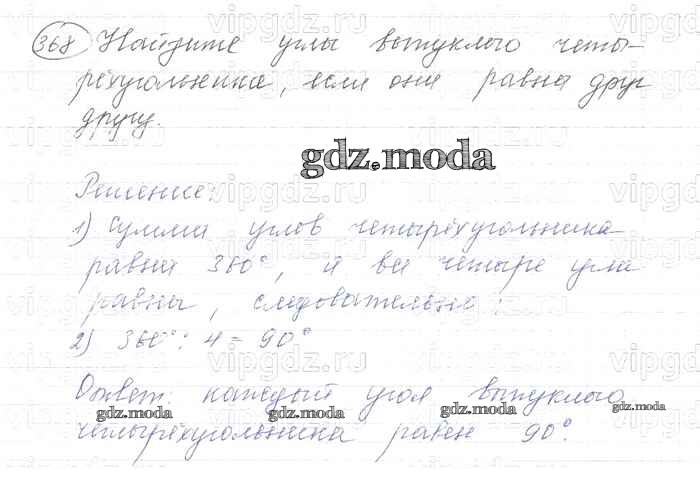 368 Найдите углы выпуклого четы-
рёхугольника, если они равны друг
другу.
gdz.moda
Решение:
1) Сумма углов четырёхугольника
равна 360°, и все четыре угла
равны, следовательно:
2) 360°: 4 = 90°
Ответ: каждый угол выпуклого
gdz.moda gdz.moda gdz.moda gdz.moda
четырёхугольника равен 90°.
vipgdz.ru